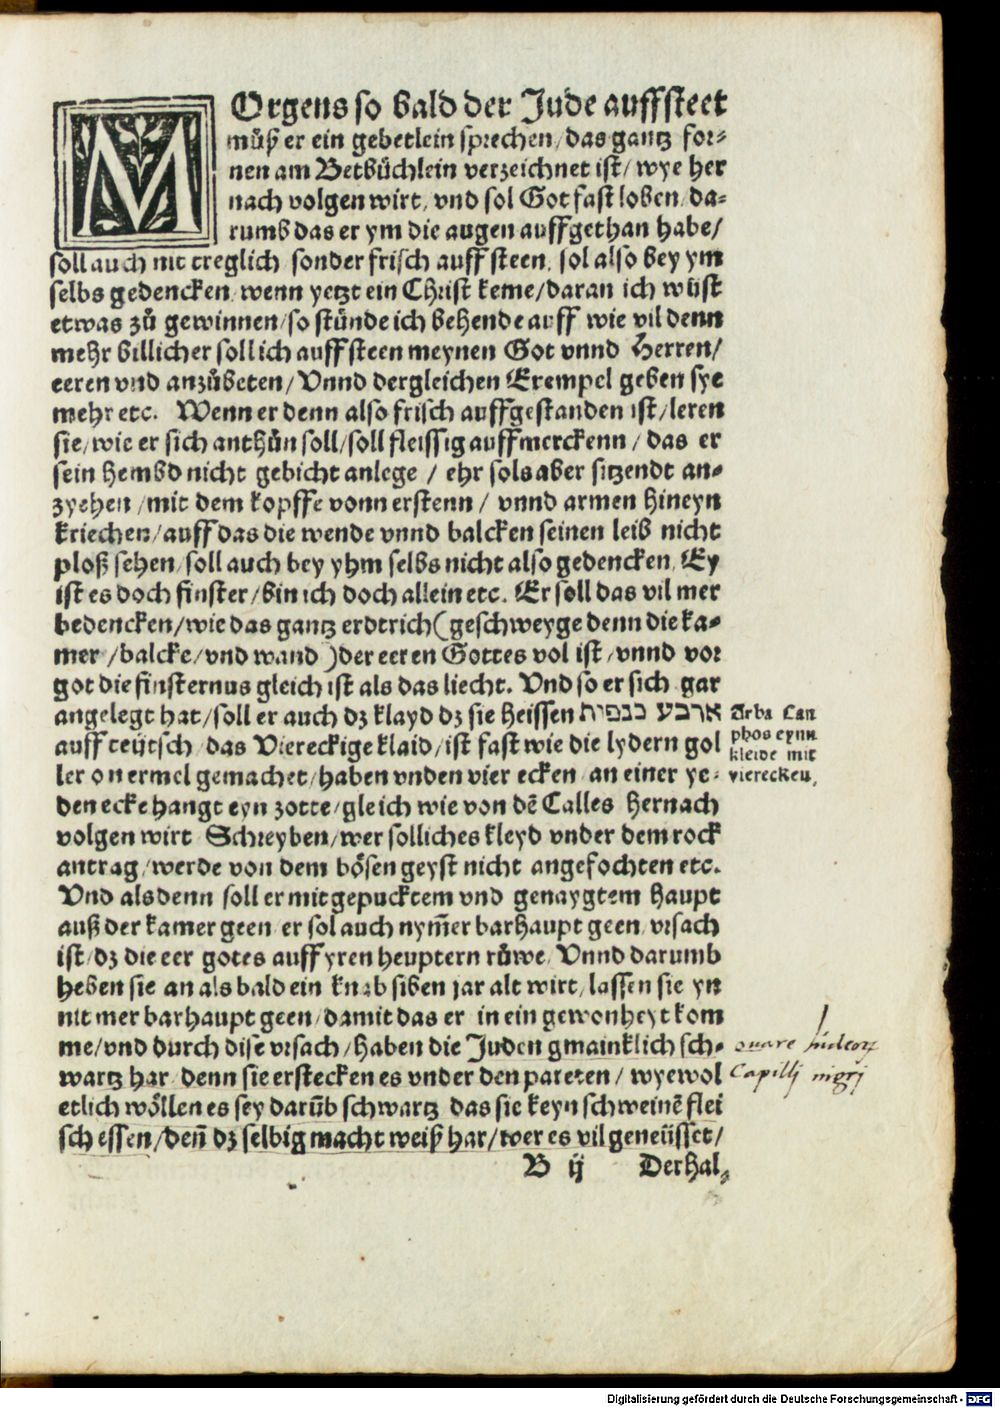 MOrgens so bald der Jude auffsteet
můß er ein gebetlein sprechen/das gantz for-
nen am Betbüchlein verzeichnet ist/wye her
nach volgen wirt/ vnd sol Got fast loben/da-
rumb das er ym die augen auffgethan habe/
soll auch nit treglich sonder frisch auff steen/ sol also bey ym
selbs gedencken/wenn yetzt ein Christ keme/daran ich wüst
etwas zů gewinnen/so stünde ich behende auff wie vil denn
mehr billicher soll ich auff steen meynen Got vnnd Herren/
eeren vnd anzůbeten/Vnnd dergleichen Exempel geben sye
mehr etc. Wenn er denn also frisch auffgestanden ist/leren
sie/wie er sich anthůn soll/soll fleissig auffmerckenn/das er
sein hembd nicht gebicht anlege/ehr sols aber sitzendt an-
zyehen/mit dem kopffe vonn erstenn/vnnd armen hineyn
kriechen/auff das die wende vnnd balcken seinen leib nicht
ploß sehen/soll auch bey yhm selbs nicht also gedencken/Ey
ist es doch finster/bin ich doch allein etc. Er soll das vil mer
bedencken/wie das gantz erdtrich(geschweyge denn die ka-
mer/balcke/vnd wand)der eeren Gottes vol ist/vnnd vor
got die finsternus gleich ist als das liecht. Vnd so er sich gar
angelegt hat/soll er auch dz klayd dz sie heissen ארבע כנפית
auff teütsch/das Viereckige klaid/ist fast wie die lydern gol
ler on ermel gemachet/haben vnden vier ecken/an einer ye-
den ecke hangt eyn zotte/gleich wie von dē Calles hernach
volgen wirt Schreyben/wer solliches kleyd vnder dem rock
antrag/werde von dem bösen geyst nicht angefochten etc.
Vnd als denn soll er mit gepucktem vnd genaygtem haupt
auß der kamer geen/er sol auch nym̄er barhaupt geen/vrsach
ist/dz die eer gotes auff yren heuptern růwe/Vnnd darumb
heben sie an als bald ein knab siben jar alt wirt/lassen sie yn
nit mer barhaupt geen/damit das er in ein gewonheyt kom
me/vnd durch dise vrsach/haben die Juden gmainklich sch-
wartz har/denn sie erstecken es vnder den pareten/wyewol
etlich wöllen es sey darūb schwartz das sie keyn schweinē flei
sch essen/deñ dz selbig macht weiß har/wer es vil geneüsset/
B ij Derhal-
Arba Can
phos eynn
kleide mit
vierecken,
quare Iudeorum
Capilli nigri
Digitalisierung gefördert durch die Deutsche Forschungsgemeinschaft - DFG